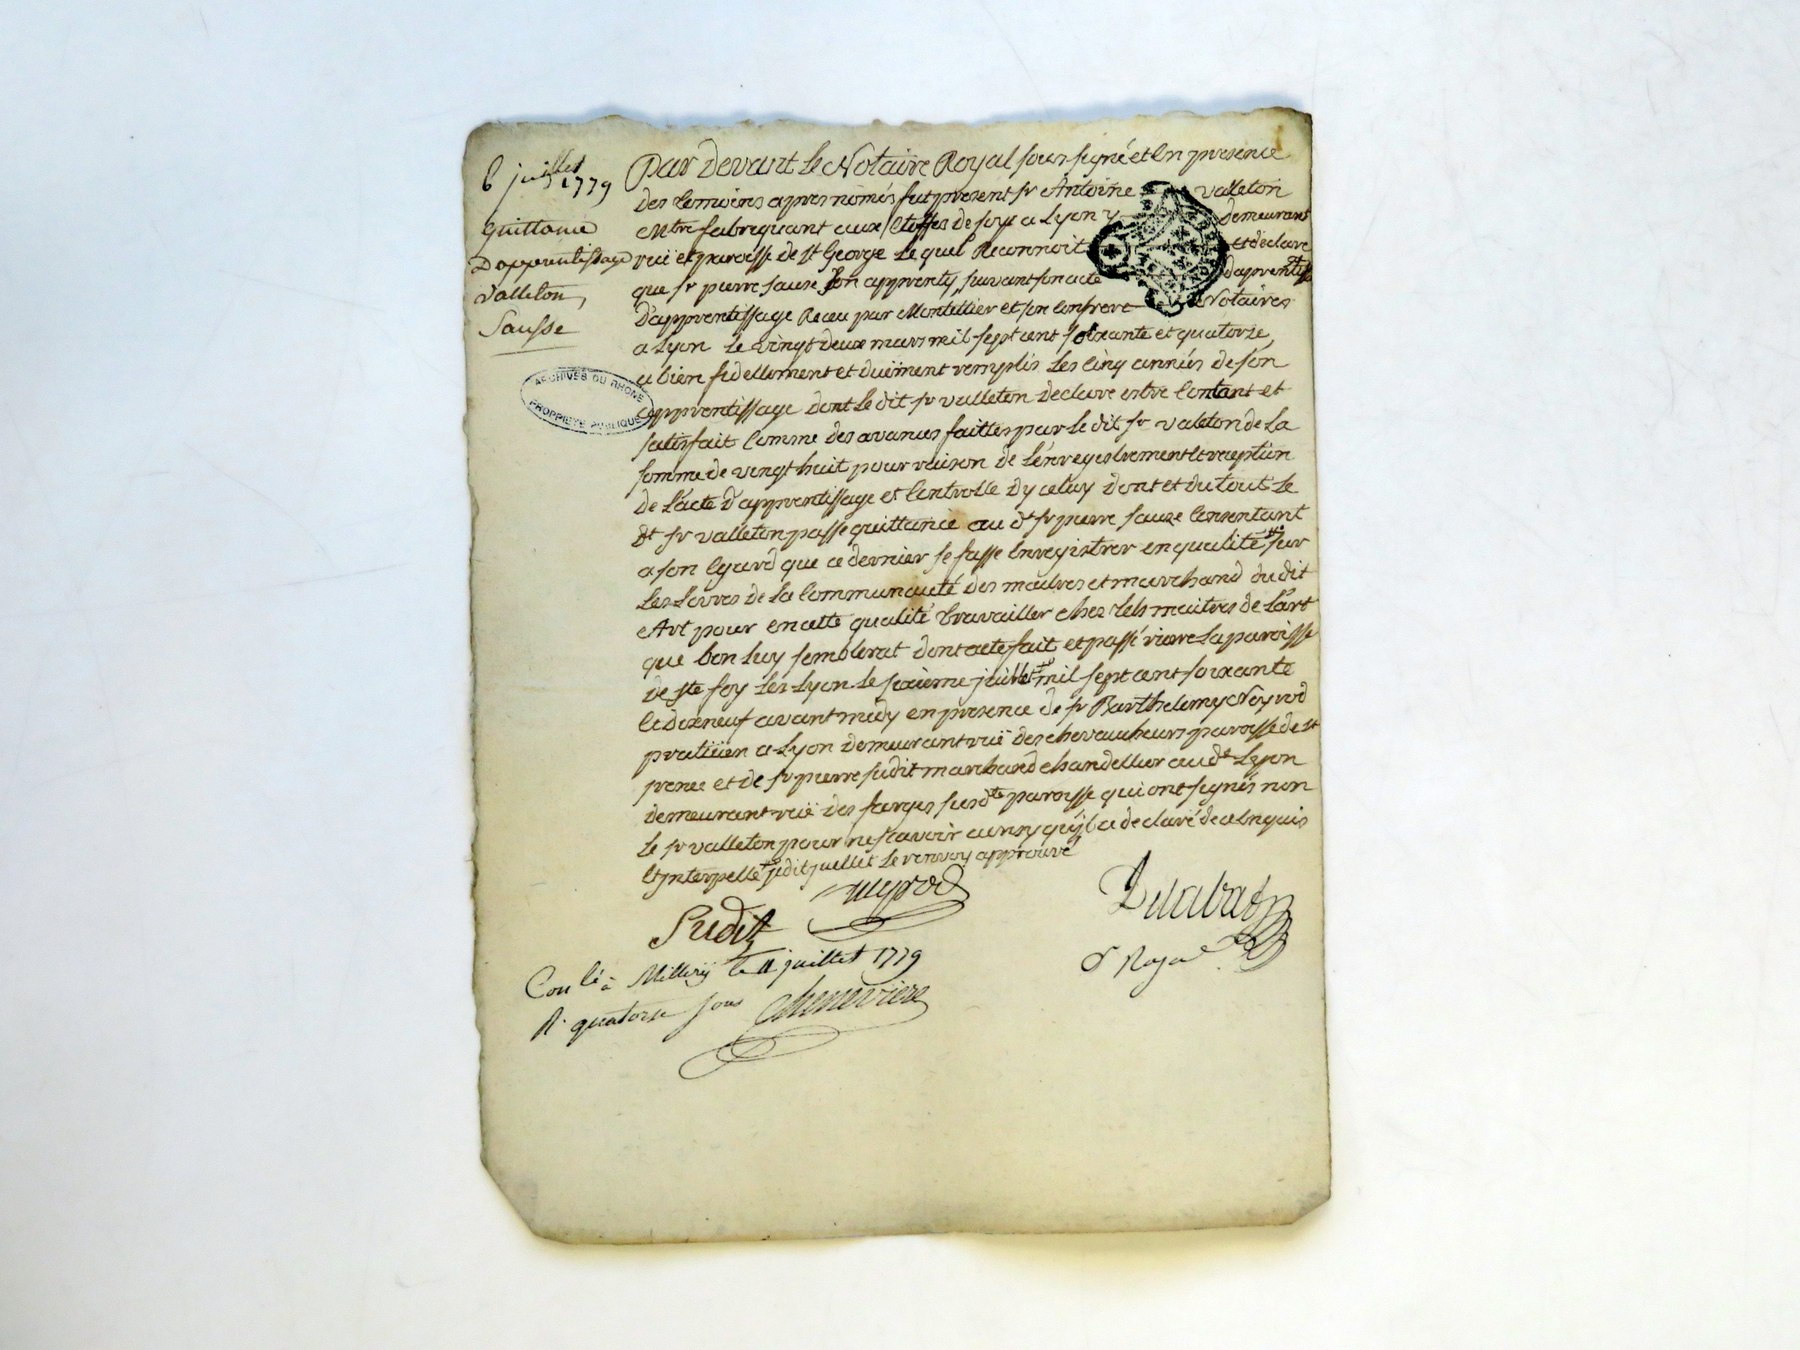 6 juillet 1779
quittance
D'apprentissage
Valleton,
Sausse
ARCHIVES DU RHONE
PROPRIÉTÉ PUBLIQUE
Par Devant le Notaire Royal sous signé et en presence
des temoins apres només fut present sr Antoine valleton
Mtre fabrequant aux Etoffes de soye a Lyon y Demeurant
ruë et paroisse de St George Lequel Reconnoit et declare
que sr pierre sauze son apprenty, suivant son acte d'apprentiss
D'apprentissage Receu par Montellier et son Confrere Notaires
a Lyon Le vingt deux mars mil sept cent soixante et quatorze,
a bien fidellement et duëment remplis Les cinq années de son
apprentissage dont Le dit sr valleton declare estre Contant et
satisfait Comme des avances faittes par Le dit sr valeton de La
somme de vingt huit pour raison de L'enregistrement et reception
de L'acte D'apprentissage et Controlle Dyceluy Dont et du tout Le
dt sr valleton passe quittance au dt sr pierre sauze Consentant
a son Egard que ce dernier se fasse Enregistrer en qualité sur
Les Livres de La Communauté des maitres et marchand du dit
Art pour en cette qualité travailler chez Les maitres de L'art
que bon Luy semblerat dont acte fait et passé riere La paroisse
de Ste foy Les Lyon Le sixieme juillet mil sept cent soixante
et dixneuf avant midy en presence de sr Barthelemy Neyrod
praticien a Lyon demeurant ruë des chevaucheurs paroisse de st
yrenee et de sr pierre sudit marchand chandellier au dt Lyon
demeurant ruë des farges susdte paroisse qui ont signés non
Le sr valleton pour ne scavoir a declaré de ce Enquis
et Interpellé Le renvoy approuvé
neyrod
Sudit
Delabat
Nre Royal
Conlé à Millery le 11 juillet 1779
R. quatorse sous Chenevière